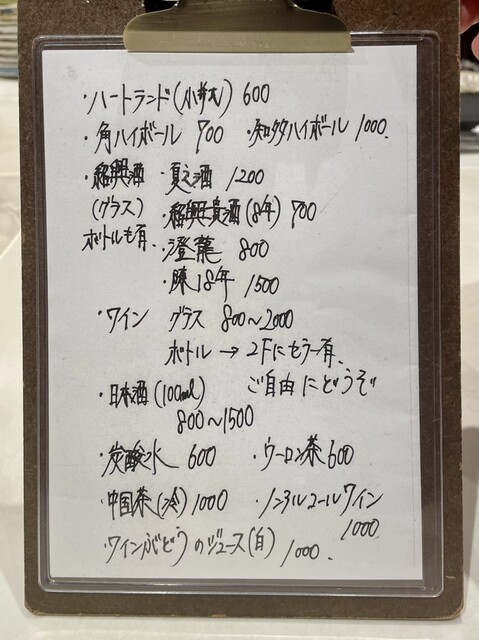 ・ハートランド(小瓶) 600
・角ハイボール 700 ・知多ハイボール 1000.
・紹興酒 ・夏之酒 1200
(グラス) ・紹興貴酒(8年) 700
ボトルも有. ・澄龍 800
・陳18年 1500
・ワイン グラス 800〜2000
ボトル → 2Fにセラー有.
ご自由にどうぞ
・日本酒(100ml)
800〜1500
・炭酸水 600 ・ウーロン茶 600
・中国茶(冷) 1000 ・ノンアルコールワイン
1000
・ワインぶどうのジュース(白) 1000.